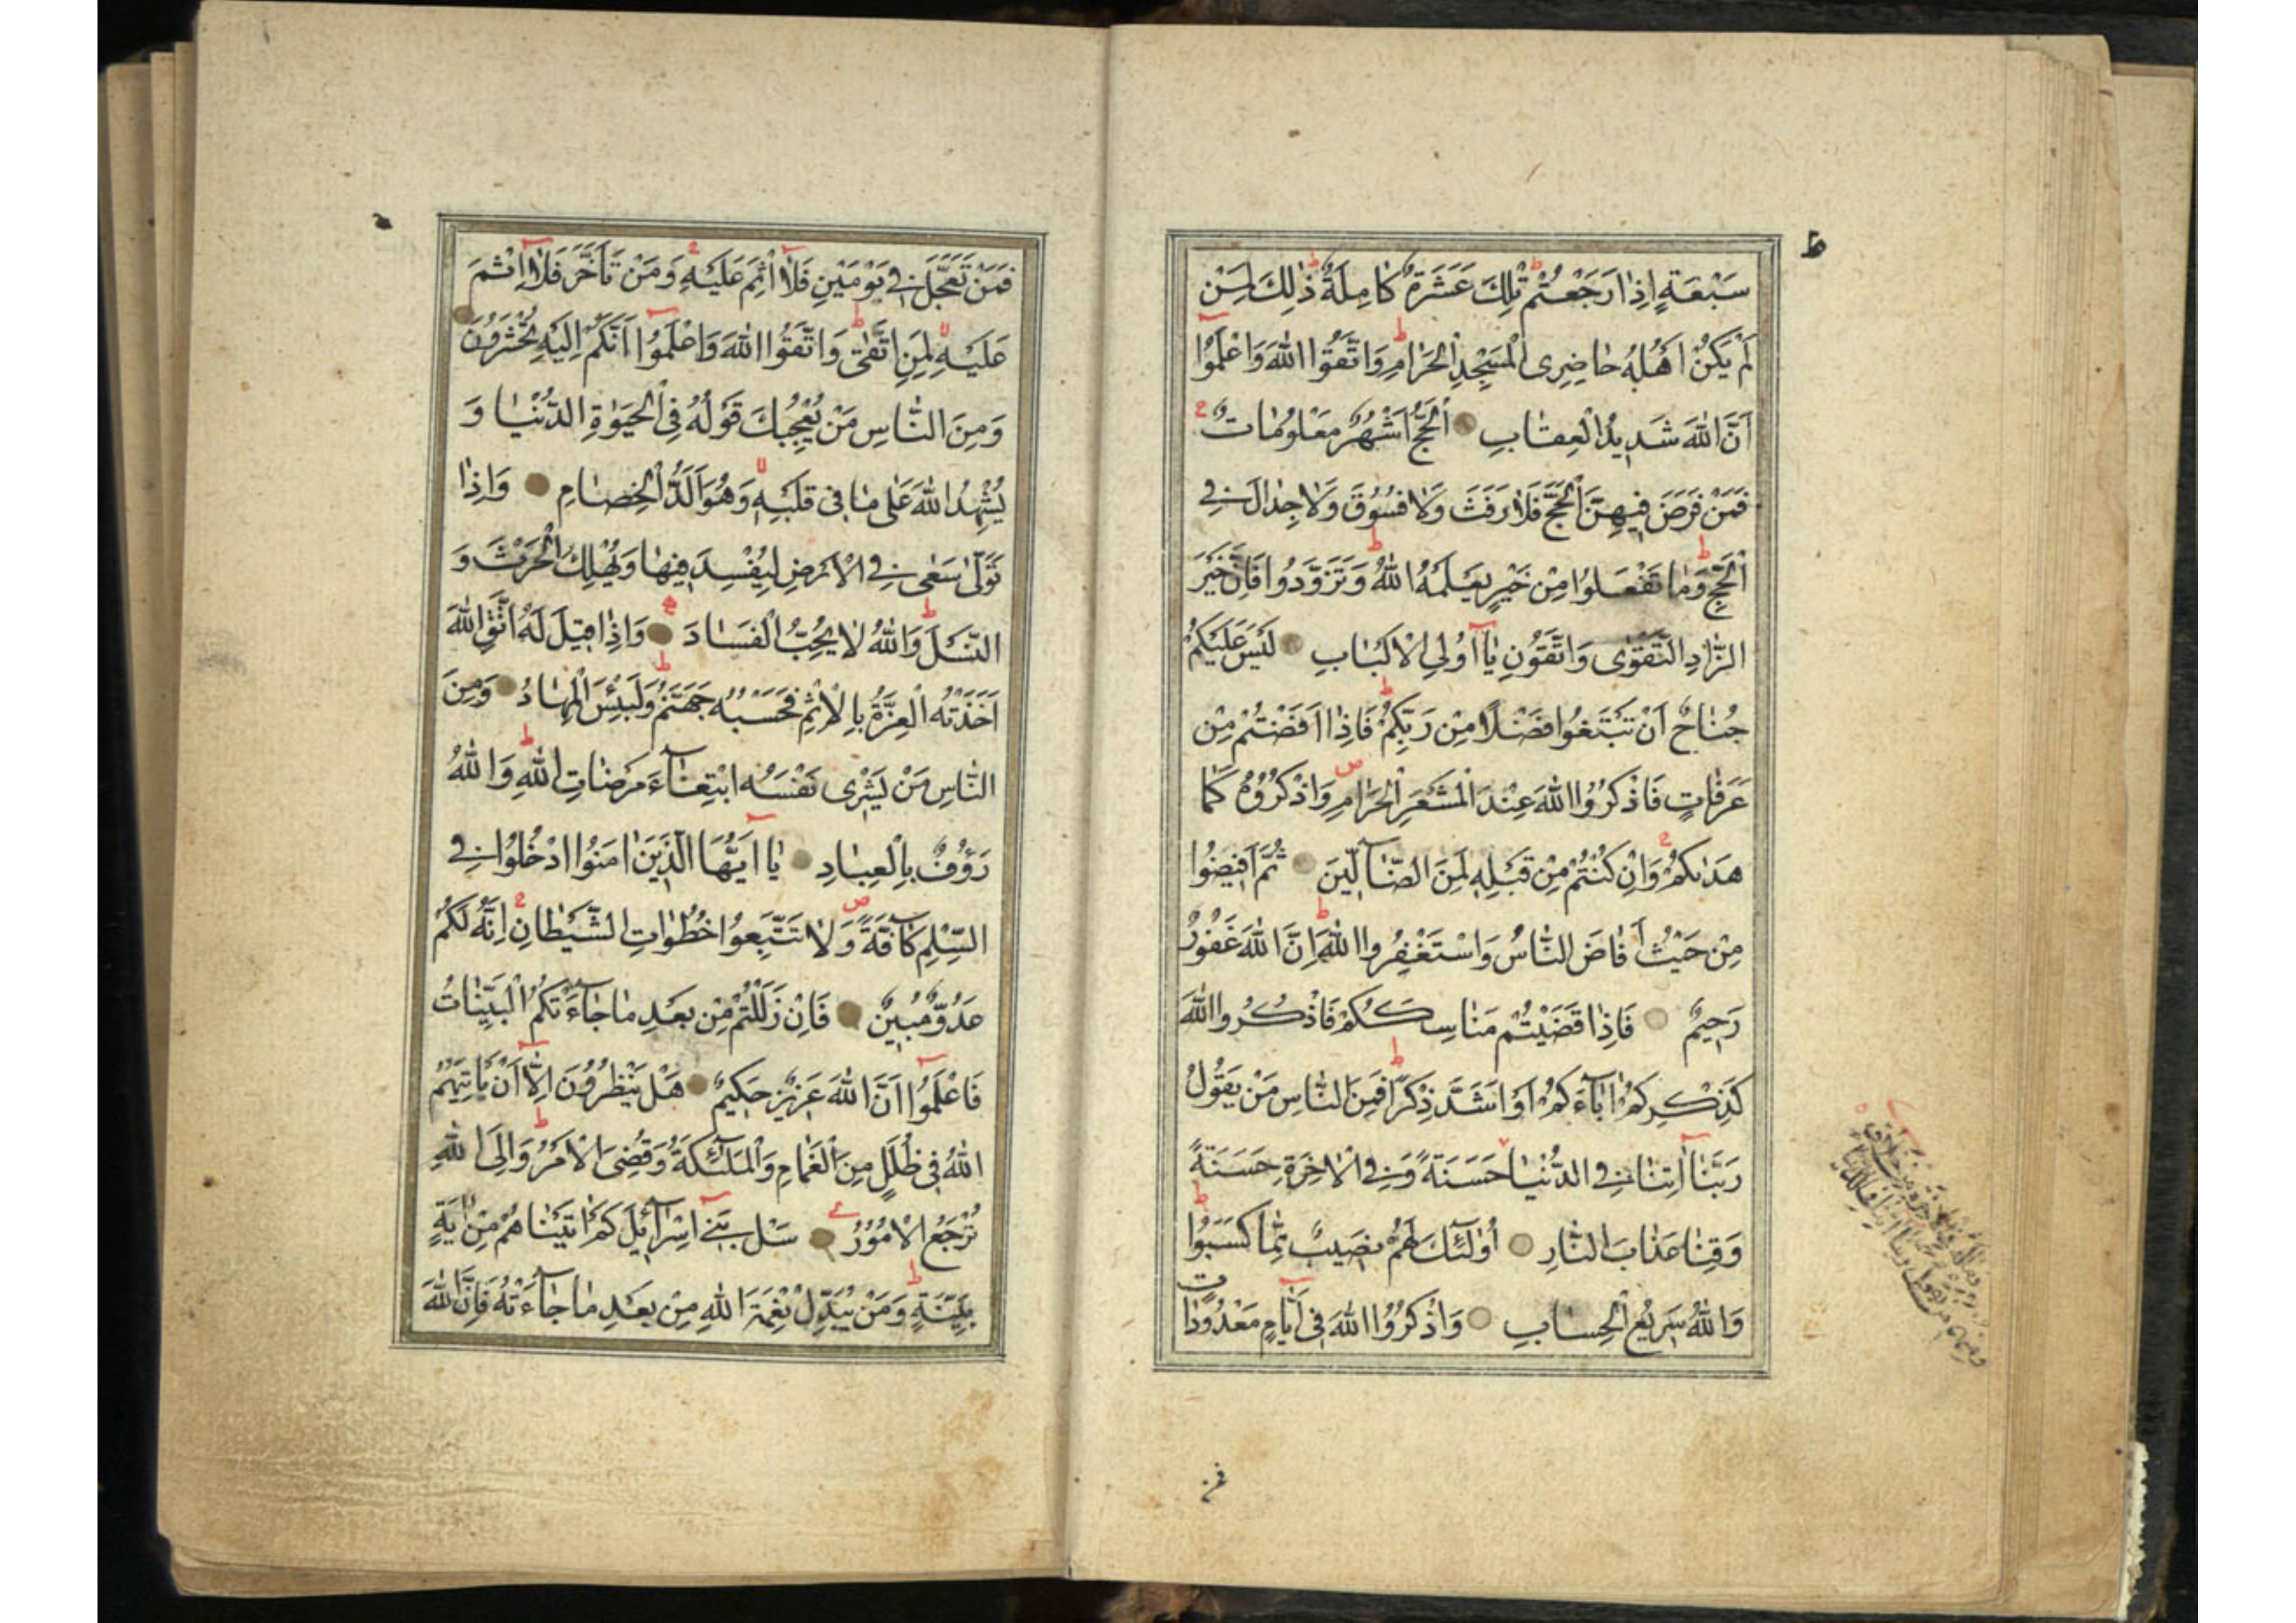 سَبْعَةٍ اِذٰا رَجَعْتُمْ تِلْكَ عَشَرَةٌ كٰامِلَةٌ ذٰلِكَ لِمَنْ
لَمْ يَكُنْ اَهْلُهُ حٰاضِرِى الْمَسْجِدِ الْحَرٰامِ وَاتَّقُوا اللّٰهَ وَاعْلَمُوٓا
اَنَّ اللّٰهَ شَدِيدُ الْعِقٰابِ اَلْحَجُّ اَشْهُرٌ مَعْلُومٰاتٌ
فَمَنْ فَرَضَ فِيهِنَّ الْحَجَّ فَلٰا رَفَثَ وَلٰا فُسُوقَ وَلٰا جِدٰالَ فِى
الْحَجِّ وَمٰا تَفْعَلُوا مِنْ خَيْرٍ يَعْلَمْهُ اللّٰهُ وَتَزَوَّدُوا فَاِنَّ خَيْرَ
الزّٰادِ التَّقْوٰى وَاتَّقُونِ يٰٓا اُولِى الْاَلْبٰابِ لَيْسَ عَلَيْكُمْ
جُنٰاحٌ اَنْ تَبْتَغُوا فَضْلًا مِنْ رَبِّكُمْ فَاِذٰا اَفَضْتُمْ مِنْ
عَرَفٰاتٍ فَاذْكُرُوا اللّٰهَ عِنْدَ الْمَشْعَرِ الْحَرٰامِ وَاذْكُرُوهُ كَمٰا
هَدٰىكُمْ وَاِنْ كُنْتُمْ مِنْ قَبْلِهِ لَمِنَ الضّٰٓالِّينَ ثُمَّ اَفِيضُوا
مِنْ حَيْثُ اَفٰاضَ النّٰاسُ وَاسْتَغْفِرُوا اللّٰهَ اِنَّ اللّٰهَ غَفُورٌ
رَحِيمٌ فَاِذٰا قَضَيْتُمْ مَنٰاسِكَكُمْ فَاذْكُرُوا اللّٰهَ
كَذِكْرِكُمْ اٰبٰٓاءَكُمْ اَوْ اَشَدَّ ذِكْرًا فَمِنَ النّٰاسِ مَنْ يَقُولُ
رَبَّنٰٓا اٰتِنٰا فِى الدُّنْيٰا حَسَنَةً وَفِى الْاٰخِرَةِ حَسَنَةً
وَقِنٰا عَذٰابَ النّٰارِ اُولٰٓئِكَ لَهُمْ نَصِيبٌ مِمّٰا كَسَبُوا
وَاللّٰهُ سَرِيعُ الْحِسٰابِ وَاذْكُرُوا اللّٰهَ فِى اَيّٰامٍ مَعْدُودٰاتٍ
فمن
فَمَنْ تَعَجَّلَ فِى يَوْمَيْنِ فَلٰٓا اِثْمَ عَلَيْهِ وَمَنْ تَاَخَّرَ فَلٰٓا اِثْمَ
عَلَيْهِ لِمَنِ اتَّقٰى وَاتَّقُوا اللّٰهَ وَاعْلَمُوٓا اَنَّكُمْ اِلَيْهِ تُحْشَرُونَ
وَمِنَ النّٰاسِ مَنْ يُعْجِبُكَ قَوْلُهُ فِى الْحَيٰوةِ الدُّنْيٰا وَ
يُشْهِدُ اللّٰهَ عَلٰى مٰا فِى قَلْبِهِ وَهُوَ اَلَدُّ الْخِصٰامِ وَاِذٰا
تَوَلّٰى سَعٰى فِى الْاَرْضِ لِيُفْسِدَ فِيهٰا وَيُهْلِكَ الْحَرْثَ وَ
النَّسْلَ وَاللّٰهُ لٰا يُحِبُّ الْفَسٰادَ وَاِذٰا قِيلَ لَهُ اتَّقِ اللّٰهَ
اَخَذَتْهُ الْعِزَّةُ بِالْاِثْمِ فَحَسْبُهُ جَهَنَّمُ وَلَبِئْسَ الْمِهٰادُ وَمِنَ
النّٰاسِ مَنْ يَشْرِى نَفْسَهُ ابْتِغٰٓاءَ مَرْضٰاتِ اللّٰهِ وَاللّٰهُ
رَؤُفٌ بِالْعِبٰادِ يٰٓا اَيُّهَا الَّذِينَ اٰمَنُوا ادْخُلُوا فِى
السِّلْمِ كٰٓافَّةً وَلٰا تَتَّبِعُوا خُطُوٰاتِ الشَّيْطٰانِ اِنَّهُ لَكُمْ
عَدُوٌّ مُبِينٌ فَاِنْ زَلَلْتُمْ مِنْ بَعْدِ مٰا جٰٓاءَتْكُمُ الْبَيِّنٰاتُ
فَاعْلَمُوٓا اَنَّ اللّٰهَ عَزِيزٌ حَكِيمٌ هَلْ يَنْظُرُونَ اِلّٰٓا اَنْ يَاْتِيَهُمُ
اللّٰهُ فِى ظُلَلٍ مِنَ الْغَمٰامِ وَالْمَلٰٓئِكَةُ وَقُضِىَ الْاَمْرُ وَاِلَى اللّٰهِ
تُرْجَعُ الْاُمُورُ سَلْ بَنِىٓ اِسْرٰٓائِيلَ كَمْ اٰتَيْنٰاهُمْ مِنْ اٰيَةٍ
بَيِّنَةٍ وَمَنْ يُبَدِّلْ نِعْمَةَ اللّٰهِ مِنْ بَعْدِ مٰا جٰٓاءَتْهُ فَاِنَّ اللّٰهَ